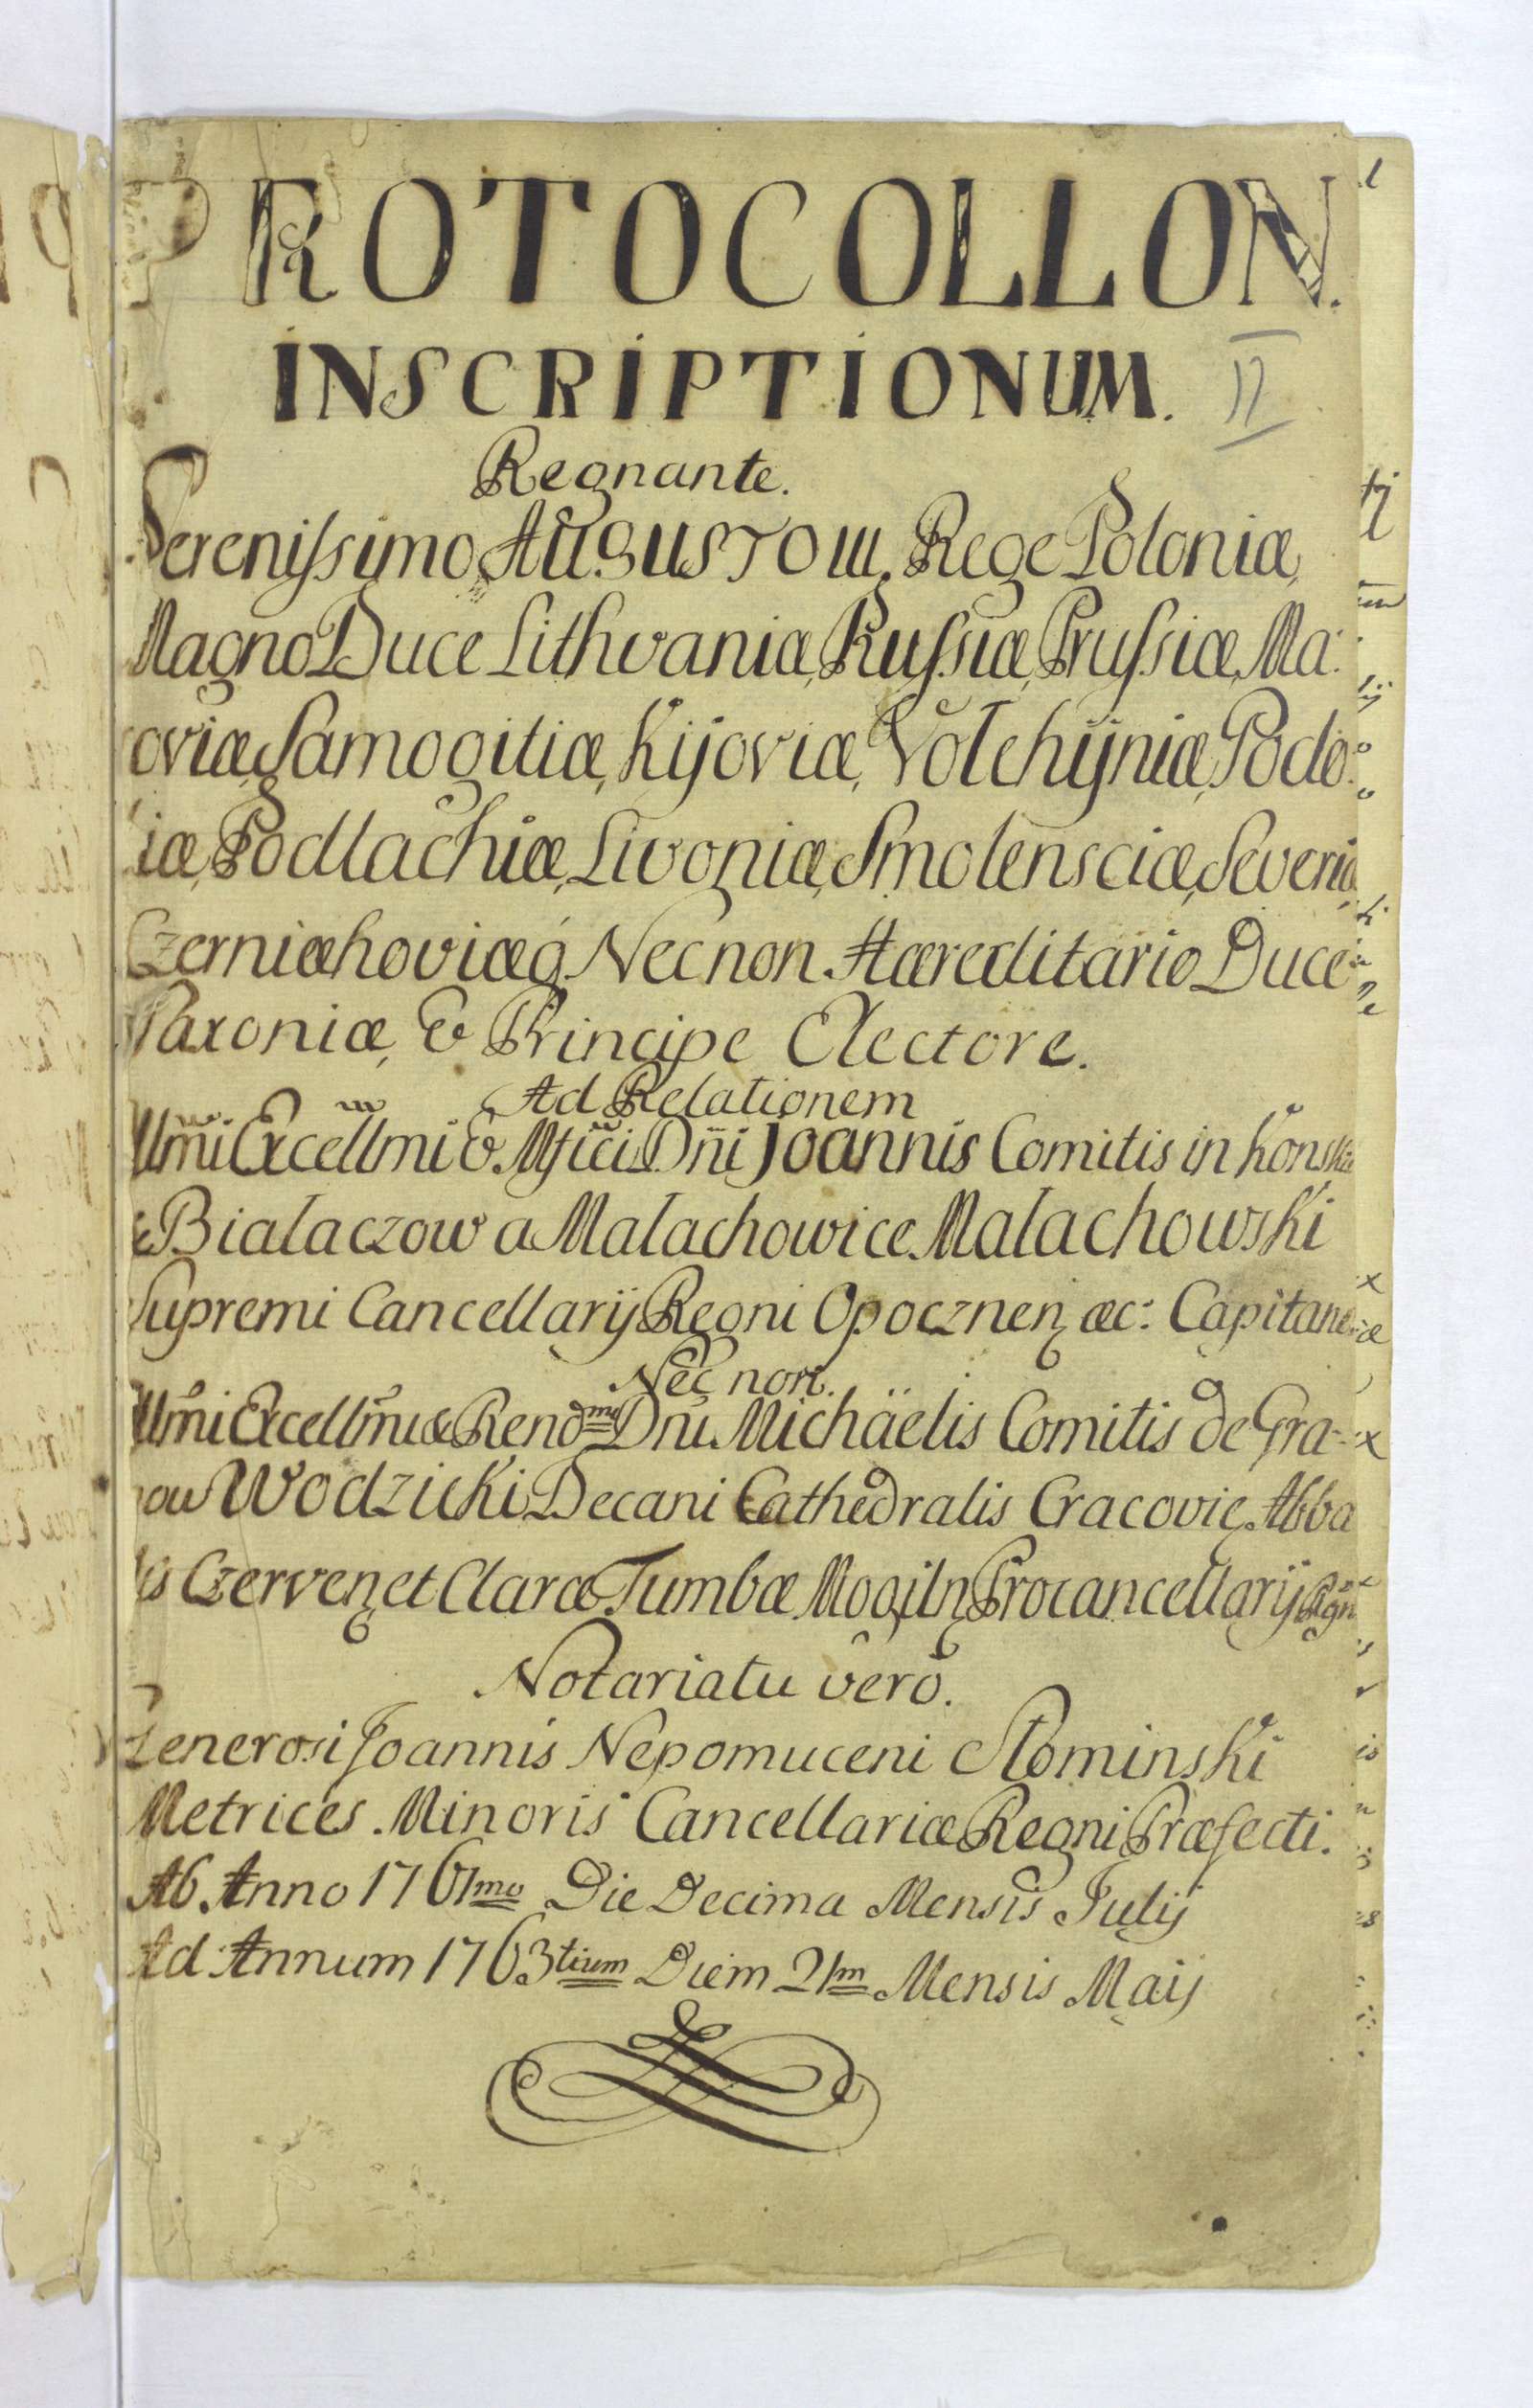 PROTOCOLLON.
INSCRIPTIONUM. II
Regnante.
Serenissimo AUGUSTO III. Rege Poloniæ,
Magno Duce Lithvaniæ, Russiæ, Prussiæ, Ma:
oviæ, Samogitiæ, Kijoviæ, Volchijniæ, Podo:
iæ, Podlachiæ, Livoniæ, Smolensciæ, Severiæ
Czerniæhoviæq́ Necnon Hæreditario Duce
Saxoniæ, & Principe Electore.
Ad Relationem
Illm̃i Excellm̃i & Mfic̃i Dñi Joannis Comitis in Konskie
& Bialaczow a Malachowice Malachowski
Supremi Cancellarij Regni Opocznen̨ æc: Capitanei
Nec non.
Illm̃i Excellm̃i & Rend̃mi Dñi Michäelis Comitis de Gra-
ow Wodzicki Decani Cathedralis Cracovię Abba
tis Czerven̨ et Claræ Tumbæ Mogiln̨ Procancellarij Rgñi
Notariatu vero.
Generosi Joannis Nepomuceni Slominski
Metrices Minoris Cancellariæ Regni Præfecti.
Ab Anno 1761mo Die Decima Mensis Julij
Ad Annum 1763tium Diem 21m Mensis Maij